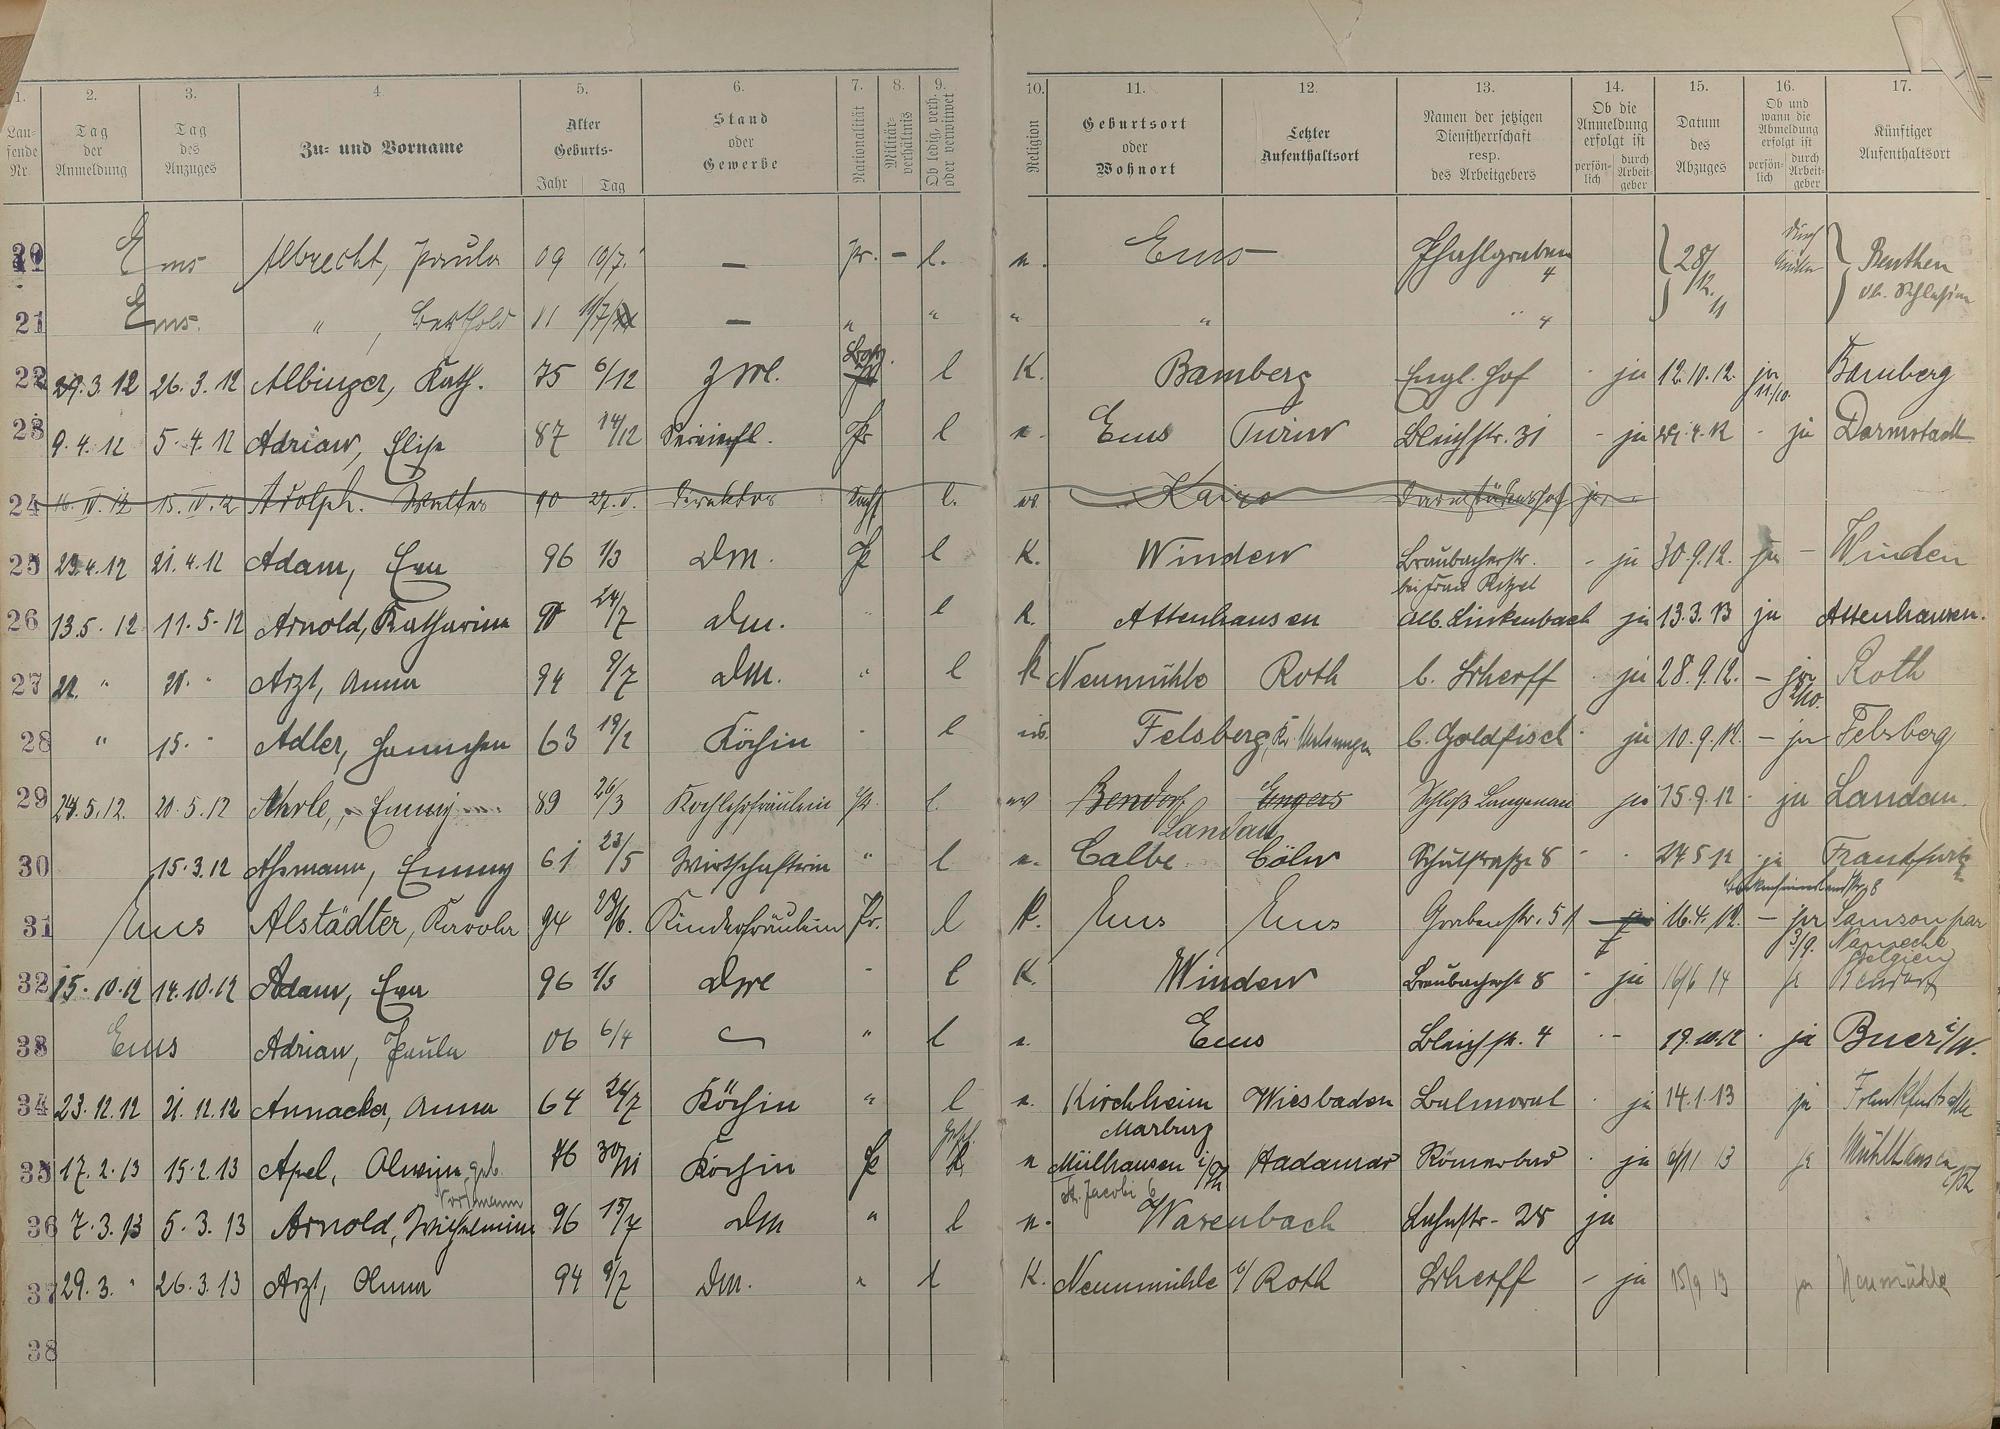 1. 2. 3. 4. 5. 6. 7. 8. 9. 10. 11. 12. 13. 14. 15. 16. 17.
Lau-
fende
Nr.
Tag
der
Anmeldung
Tag
des
Anzuges
Zu- und Vorname
Alter
Geburts-
Jahr Tag
Stand
oder
Gewerbe
Nationalität
Militär-
verhältnis
Ob ledig, verh.
oder verwitwet
Religion
Geburtsort
oder
Wohnort
Letzter
Aufenthaltsort
Namen der jetzigen
Dienstherrschaft
resp.
des Arbeitgebers
Ob die
Anmeldung
erfolgt ist
persön-
lich
durch
Arbeit-
geber
Datum
des
Abzuges
Ob und
wann die
Abmeldung
erfolgt ist
persön-
lich
durch
Arbeit-
geber
Künftiger
Aufenthaltsort
20 Ems Albrecht, Paula 09 10/7. — Pr. – l. e. Ems Pfahlgraben 4 28/12. 11 Beuthen
Ob. Schlesien
21 Ems. " , Berthold 11 — " " " " " 4
22 29.3.12 26.3.12 Albinger, Kath. 75 6/12 Zml. l K. Bamberg Engl. Hof - ja 12.10.12. ja 11/10. Bamberg
23 9.4.12 5.4.12 Adrian, Elise 87 14/12 Pr l e. Ems Turin Bleichstr. 31 - ja 29.4.12 - ja Darmstadt
24 16.IV.12 15.IV.12 Adolph. Walter 90 27.V. Direktor l. ev. Kairo Darmstädterhof ja
25 23.4.12 21.4.12 Adam, Eva 96 1/3 Dm. Pr l K. Winden Braubacherstr. - ja 30.9.12. ja – Winden
bei Frau Ritzel
26 13.5.12 11.5.12 Arnold, Katharina 24/7 Dm. " l K. Attenhausen Alb. Linkenbach ja 13.3.13 ja Attenhausen.
27 21. " 20. " Arzt, Anna 94 9/7 Dm. " l k Neumühle Roth b. Scherff - ja 28.9.12. – ja 2/10. Roth
28 " 15. " Adler, Hannchen 63 19/2 Köchin " l is. Felsberg, Kr. Melsungen b. Goldfisch - ja 10.9.12. – ja Felsberg
29 24.5.12. 20.5.12 Ahrle, Emmy 89 26/3 Kochlehrfräulein Pr. l. ev Bendorf Engers Schloß Langenau ja 15.9.12 - ja Landau.
Landau
30 15.3.12 Ahsmann, Emmy 61 23/5 Wirtschafterin " l e. Calbe Cöln Schulstraße 8 - - 27 5 12 ja Frankfurt
31 Ems Alstädter, Karola 94 Kinderfräulein Pr. l K. Ems Ems Grabenstr. 51 16.4.12. – ja 3/9. Samson par
Nameche
Belgien
32 15.10.12 14.10.12 Adam, Eva 96 1/3 Dme " l K. Winden Braubacherstr 8 - ja 16/6 14 ja Bendorf
33 Ems Adrian, Paula 06 6/4 — " l e. Ems Bleichstr. 4 - - 19.10.12 - ja Buer i/W.
34 23.12.12 21.12.12 Annacker, Anna 64 24/7 Köchin " l e. Kirchheim Wiesbaden Balmoral - ja 14.1.13 ja Frankfurt a/M
Marburg
35 17.2.13 15.2.13 Apel, Olwine geb. 76 30/VI Köchin Pr gesch. e Mülhausen i/Th Hadamar Römerbad - ja 6/11 13 ja Mühlhausen i/Th
St. Jacobi 6
36 7.3.13 5.3.13 Arnold, Wilhelmine 96 15/7 Dm " l e. Wasenbach Lahnstr. 28 ja
37 29.3. " 26.3.13 Arzt, Anna 94 9/7 Dm. " l K. Neumühle b/ Roth Scherff – ja 15/9 13 ja Neumühle
38